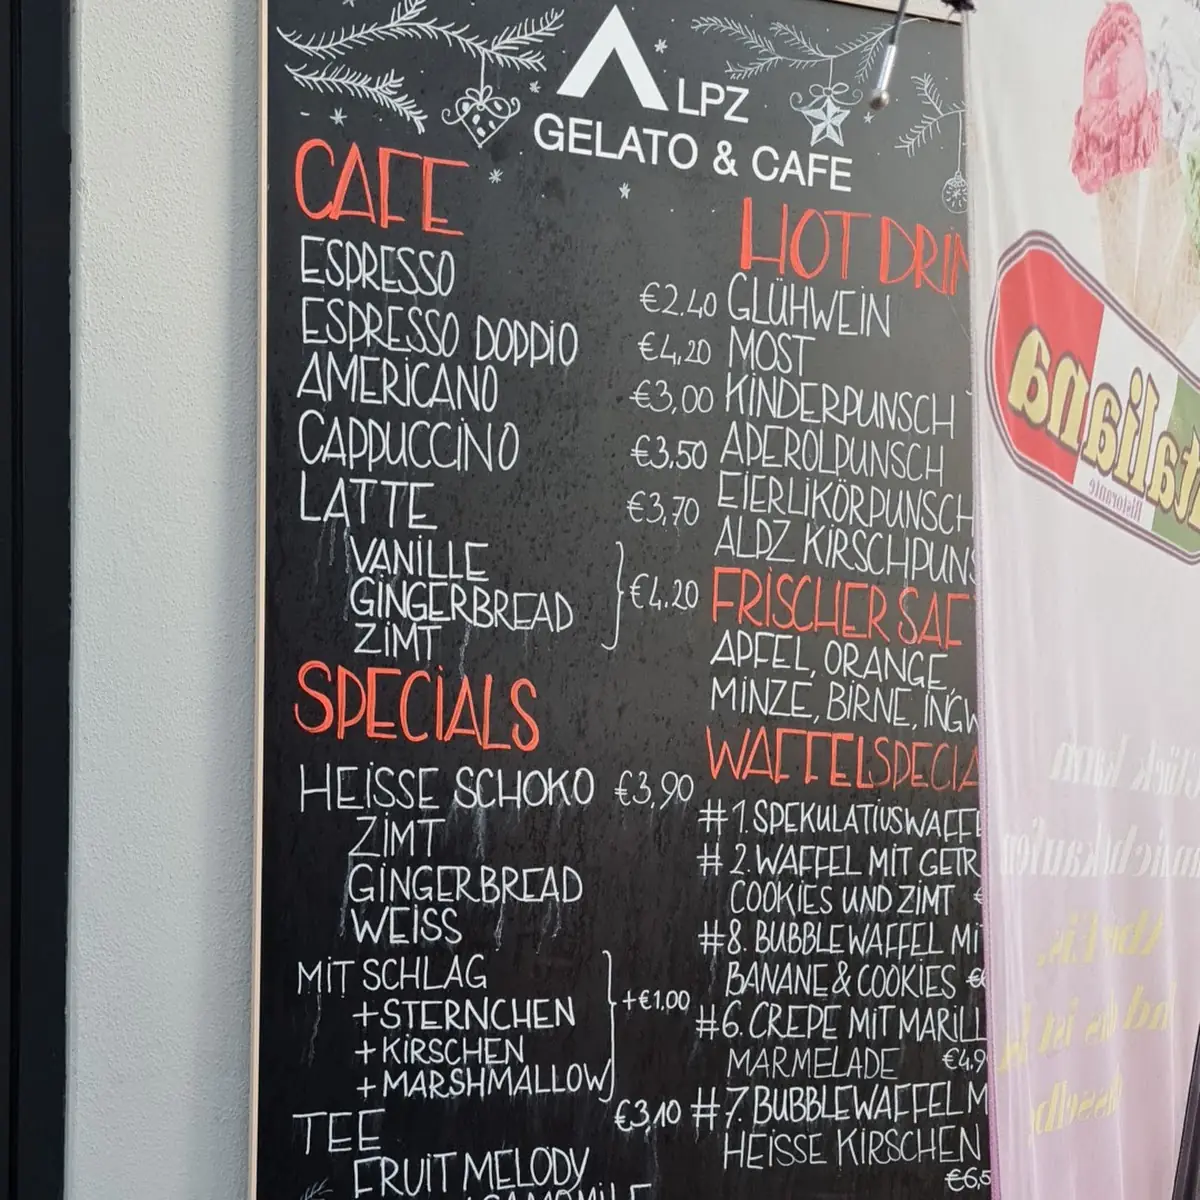 ALPZ
GELATO & CAFE
CAFE
ESPRESSO €2.40
ESPRESSO DOPPIO €4,20
AMERICANO €3,00
CAPPUCCINO €3.50
LATTE €3,70
VANILLE
GINGERBREAD €4.20
ZIMT
SPECIALS
HEISSE SCHOKO €3,90
ZIMT
GINGERBREAD
WEISS
MIT SCHLAG
+STERNCHEN +€1,00
+KIRSCHEN
+MARSHMALLOW
TEE €3,10
FRUIT MELODY
HOT DRIN
GLÜHWEIN
MOST
KINDERPUNSCH
APEROLPUNSCH
EIERLIKÖRPUNSCH
ALPZ KIRSCHPUNS
FRISCHER SAF
APFEL, ORANGE,
MINZE, BIRNE, INGW
WAFFELSPECIA
#1. SPEKULATIUSWAFFE
#2. WAFFEL MIT GETR
COOKIES UND ZIMT €
#8. BUBBLEWAFFEL MI
BANANE & COOKIES €
#6. CREPE MIT MARILL
MARMELADE €4,9
#7. BUBBLEWAFFEL M
HEISSE KIRSCHEN
€6,5
italiana
Ristorante